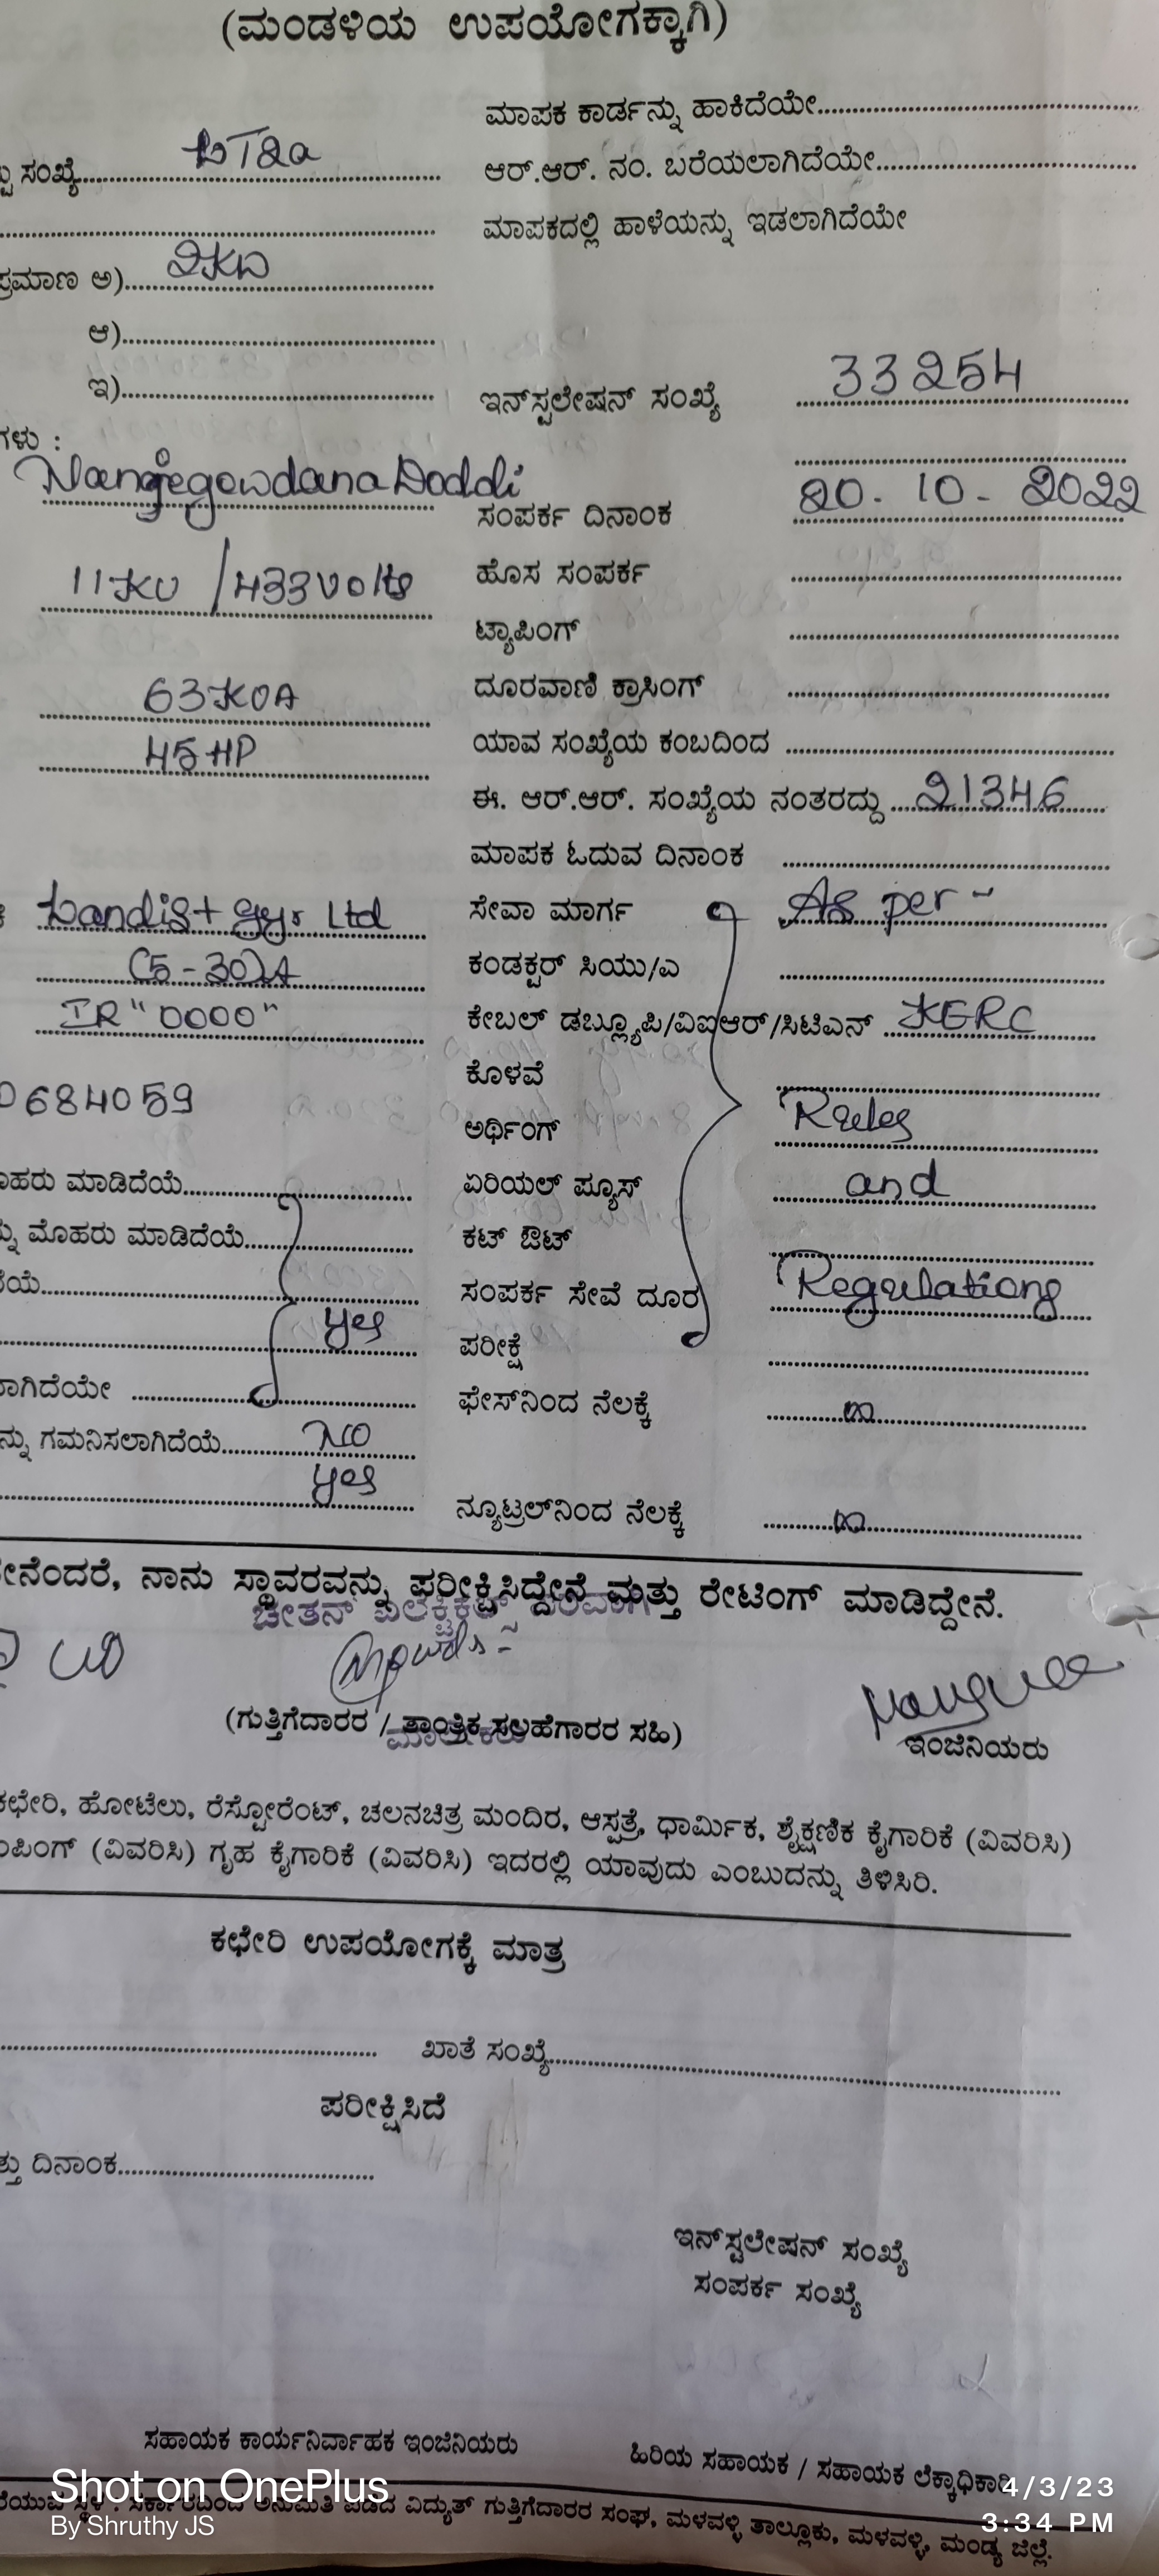 (ಮಂಡಳಿಯ ಉಪಯೋಗಕ್ಕಾಗಿ)
ಮಾಪಕ ಕಾರ್ಡನ್ನು ಹಾಕಿದೆಯೇ
ಸಂಖ್ಯೆ LT2a
ಆರ್.ಆರ್. ನಂ. ಬರೆಯಲಾಗಿದೆಯೇ
ಮಾಪಕದಲ್ಲಿ ಹಾಳೆಯನ್ನು ಇಡಲಾಗಿದೆಯೇ
ಪ್ರಮಾಣ ಅ) 2KW
ಆ)
ಇ)
ಇನ್‌ಸ್ಟಲೇಷನ್ ಸಂಖ್ಯೆ 33254
ಗಳು :
Nanjegowdana Doddi
ಸಂಪರ್ಕ ದಿನಾಂಕ 20-10-2022
11KV /433Volts
ಹೊಸ ಸಂಪರ್ಕ
ಟ್ಯಾಪಿಂಗ್
63KVA
ದೂರವಾಣಿ ಕ್ರಾಸಿಂಗ್
45HP
ಯಾವ ಸಂಖ್ಯೆಯ ಕಂಬದಿಂದ
ಈ. ಆರ್.ಆರ್. ಸಂಖ್ಯೆಯ ನಂತರದ್ದು 21346
ಮಾಪಕ ಓದುವ ದಿನಾಂಕ
Landis+ gyr Ltd
ಸೇವಾ ಮಾರ್ಗ As per -
(5-30)A
ಕಂಡಕ್ಟರ್ ಸಿಯು/ಎ
IR "0000"
ಕೇಬಲ್ ಡಬ್ಲ್ಯೂಪಿ/ವಿಐಆರ್/ಸಿಟಿಎನ್ KERC
ಕೊಳವೆ
0684059
ಅರ್ಥಿಂಗ್ Rules
ಮೊಹರು ಮಾಡಿದೆಯೆ
ಏರಿಯಲ್ ಫ್ಯೂಸ್ and
ಮೊಹರು ಮಾಡಿದೆಯೆ
ಕಟ್ ಔಟ್
ಸಂಪರ್ಕ ಸೇವೆ ದೂರ Regulations
yes
ಪರೀಕ್ಷೆ
ಲಾಗಿದೆಯೇ
ಫೇಸ್‌ನಿಂದ ನೆಲಕ್ಕೆ ∞
ಗಮನಿಸಲಾಗಿದೆಯೆ NO
yes
ನ್ಯೂಟ್ರಲ್‌ನಿಂದ ನೆಲಕ್ಕೆ ∞
ನೇನೆಂದರೆ, ನಾನು ಸ್ಥಾವರವನ್ನು ಪರೀಕ್ಷಿಸಿದ್ದೇನೆ ಮತ್ತು ರೇಟಿಂಗ್ ಮಾಡಿದ್ದೇನೆ.
ಚೇತನ್ ಎಲೆಕ್ಟ್ರಿಕಲ್ಸ್
(ಗುತ್ತಿಗೆದಾರರ / ತಾಂತ್ರಿಕ ಸಲಹೆಗಾರರ ಸಹಿ)
ಇಂಜಿನಿಯರು
ಕಛೇರಿ, ಹೋಟೆಲು, ರೆಸ್ಟೋರೆಂಟ್, ಚಲನಚಿತ್ರ ಮಂದಿರ, ಆಸ್ಪತ್ರೆ, ಧಾರ್ಮಿಕ, ಶೈಕ್ಷಣಿಕ ಕೈಗಾರಿಕೆ (ವಿವರಿಸಿ)
ಪಂಪಿಂಗ್ (ವಿವರಿಸಿ) ಗೃಹ ಕೈಗಾರಿಕೆ (ವಿವರಿಸಿ) ಇದರಲ್ಲಿ ಯಾವುದು ಎಂಬುದನ್ನು ತಿಳಿಸಿರಿ.
ಕಛೇರಿ ಉಪಯೋಗಕ್ಕೆ ಮಾತ್ರ
ಖಾತೆ ಸಂಖ್ಯೆ
ಪರೀಕ್ಷಿಸಿದೆ
ದಿನಾಂಕ
ಇನ್‌ಸ್ಟಲೇಷನ್ ಸಂಖ್ಯೆ
ಸಂಪರ್ಕ ಸಂಖ್ಯೆ
ಸಹಾಯಕ ಕಾರ್ಯನಿರ್ವಾಹಕ ಇಂಜಿನಿಯರು
ಹಿರಿಯ ಸಹಾಯಕ / ಸಹಾಯಕ ಲೆಕ್ಕಾಧಿಕಾರಿ
ಸ್ಥಳ : ಸರ್ಕಾರದಿಂದ ಅನುಮತಿ ಪಡೆದ ವಿದ್ಯುತ್ ಗುತ್ತಿಗೆದಾರರ ಸಂಘ, ಮಳವಳ್ಳಿ ತಾಲ್ಲೂಕು, ಮಳವಳ್ಳಿ, ಮಂಡ್ಯ ಜಿಲ್ಲೆ.
Shot on OnePlus
By Shruthy JS
4/3/23
3:34 PM